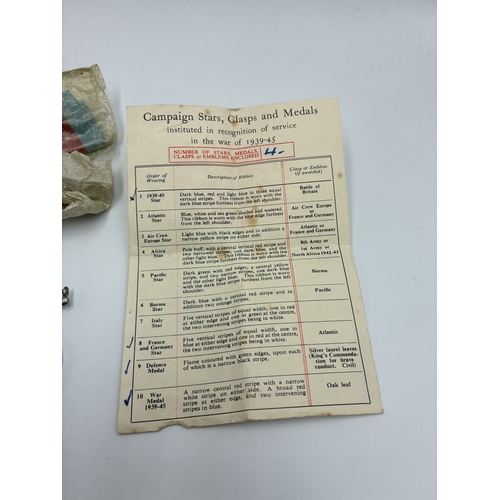 Campaign Stars, Clasps and Medals
instituted in recognition of service
in the war of 1939-45
NUMBER OF STARS, MEDALS,
CLASPS or EMBLEMS ENCLOSED
4-
Order of
Wearing
Description of Ribbon
Clasp or Emblem
(if awarded)
1 1939-45
Star
Dark blue, red and light blue in three equal
vertical stripes. This ribbon is worn with the
dark blue stripe furthest from the left shoulder.
Battle of
Britain
2 Atlantic
Star
Blue, white and sea green shaded and watered.
This ribbon is worn with the blue edge furthest
from the left shoulder.
Air Crew Europe
or
France and Germany
3 Air Crew
Europe Star
Light blue with black edges and in addition a
narrow yellow stripe on either side.
Atlantic or
France and Germany
4 Africa
Star
Pale buff, with a central vertical red stripe and
two narrower stripes, one dark blue, and the
other light blue. This ribbon is worn with the
dark blue stripe furthest from the left shoulder.
8th Army or
1st Army or
North Africa 1942-43
5 Pacific
Star
Dark green with red edges, a central yellow
stripe, and two narrow stripes, one dark blue
and the other light blue. This ribbon is worn
with the dark blue stripe furthest from the left
shoulder.
Burma
6 Burma
Star
Dark blue with a central red stripe and in
addition two orange stripes.
Pacific
7 Italy
Star
Five vertical stripes of equal width, one in red
at either edge and one in green at the centre,
the two intervening stripes being in white.
8 France
and Germany
Star
Five vertical stripes of equal width, one in
blue at either edge and one in red at the centre,
the two intervening stripes being in white.
Atlantic
9 Defence
Medal
Flame coloured with green edges, upon each
of which is a narrow black stripe.
Silver laurel leaves
(King's Commenda-
tion for brave
conduct. Civil)
10 War
Medal
1939-45
A narrow central red stripe with a narrow
white stripe on either side. A broad red
stripe at either edge, and two intervening
stripes in blue.
Oak leaf